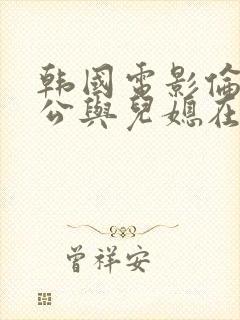 韩國電影倫
公與兒媳在
曾祥安